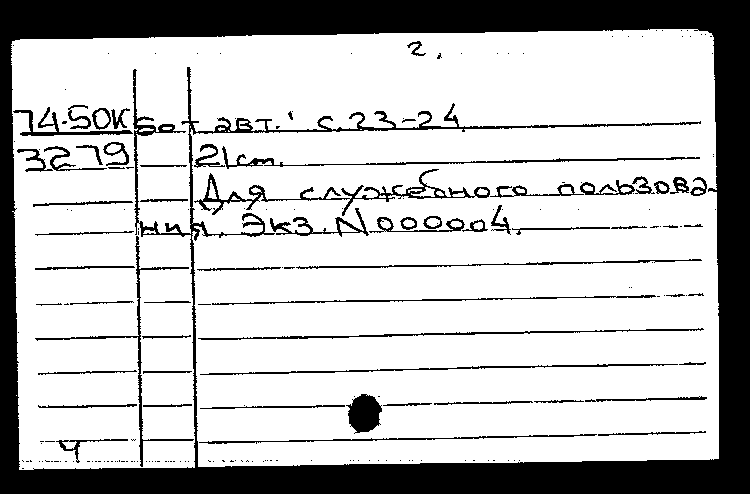 2.
74-50К бот авт.: с.23-24
3279 21 cm.
Для служебного пользова-
ния. Экз. N 000004.
4